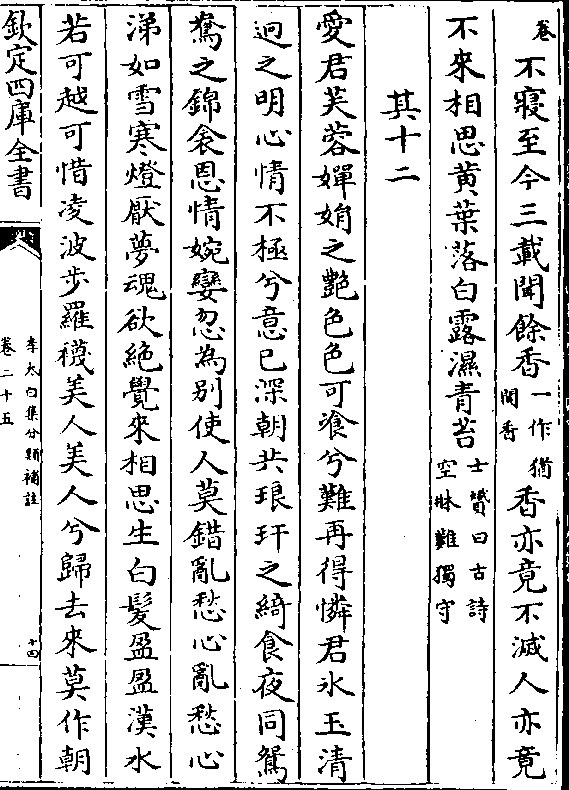 卷不寢至今三載聞餘香一作猶聞香香亦竟不滅人亦竟
不來相思黃葉落白露濕青苔士贇曰古詩空牀難獨守
其十二
愛君芙蓉嬋娟之艷色色可飡兮難再得憐君氷玉清
逈之明心情不極兮意已深朝共琅玕之綺食夜同鴛
鴦之錦衾恩情婉孌忽為別使人莫錯亂愁心亂愁心
涕如雪寒燈厭夢魂欲絶覺來相思生白髮盈盈漢水
若可越可惜凌波步羅襪美人美人兮歸去來莫作朝
欽定四庫全書
李太白集分類補註
卷二十五
十四